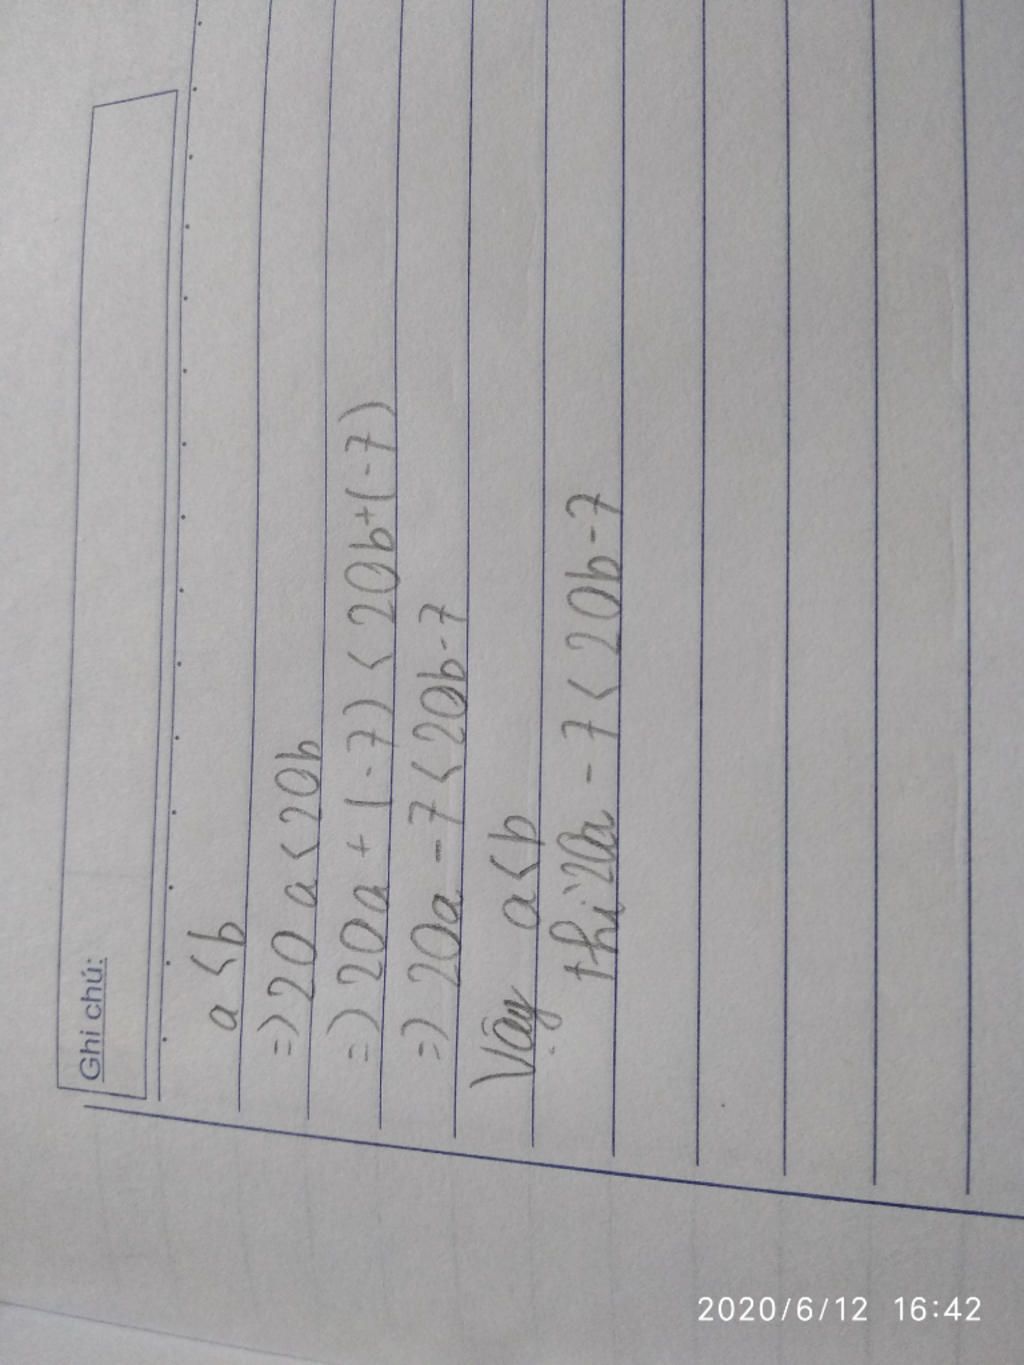 Ghi chú:
a < b
=) 20 a < 20b
=) 20a + (-7) < 20b+(-7)
=) 20a - 7 < 20b-7
Vậy a<b
thì 20a - 7 < 20b-7
2020/6/12 16:42